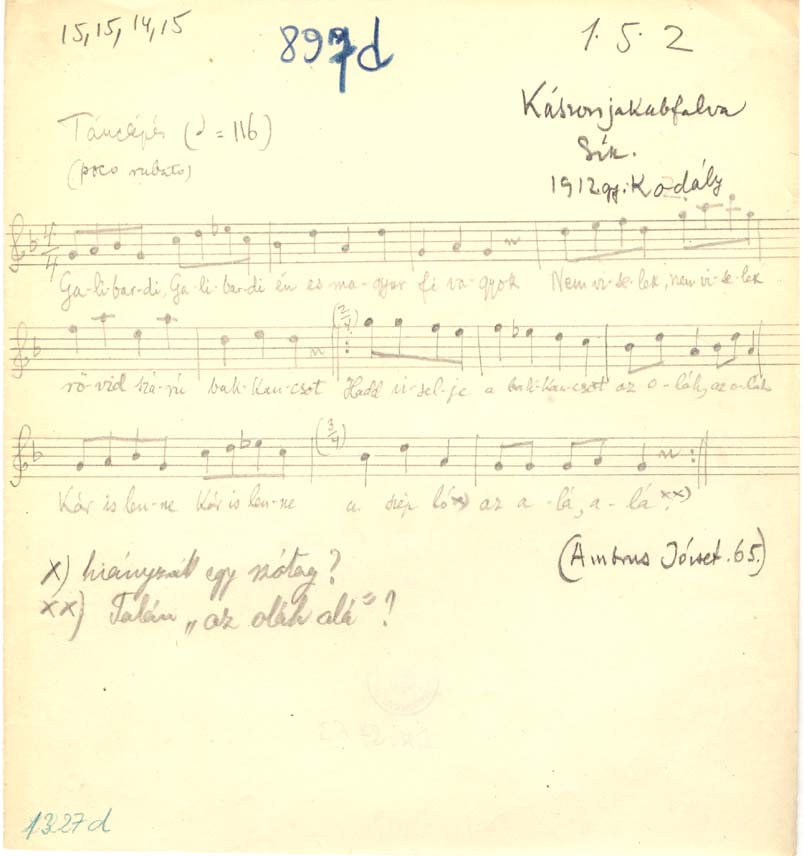 15, 15, 14, 15
897d
1. 5. 2
Kászonjakabfalva
1912 gy. Kodály
Tánclépés (♩ = 116)
(poco rubato)
4/4
Ga-li-bar-di, Ga-li-bar-di én es ma-gyar fi va-gyok Nem vi-se-lek, nem vi-se-lek
(2/4)
rö-vid szá-rú bak-kan-csot Hadd vi-sel-je a bak-kan-csot az o-láh, az o-láh
(3/4)
Kár is len-ne Kár is len-ne a szép ló x) az a-lá, a-lá xx)
(Ambrus József. 65.)
x) hiányzik egy szótag?
xx) Talán „az oláh alá"?
1327d